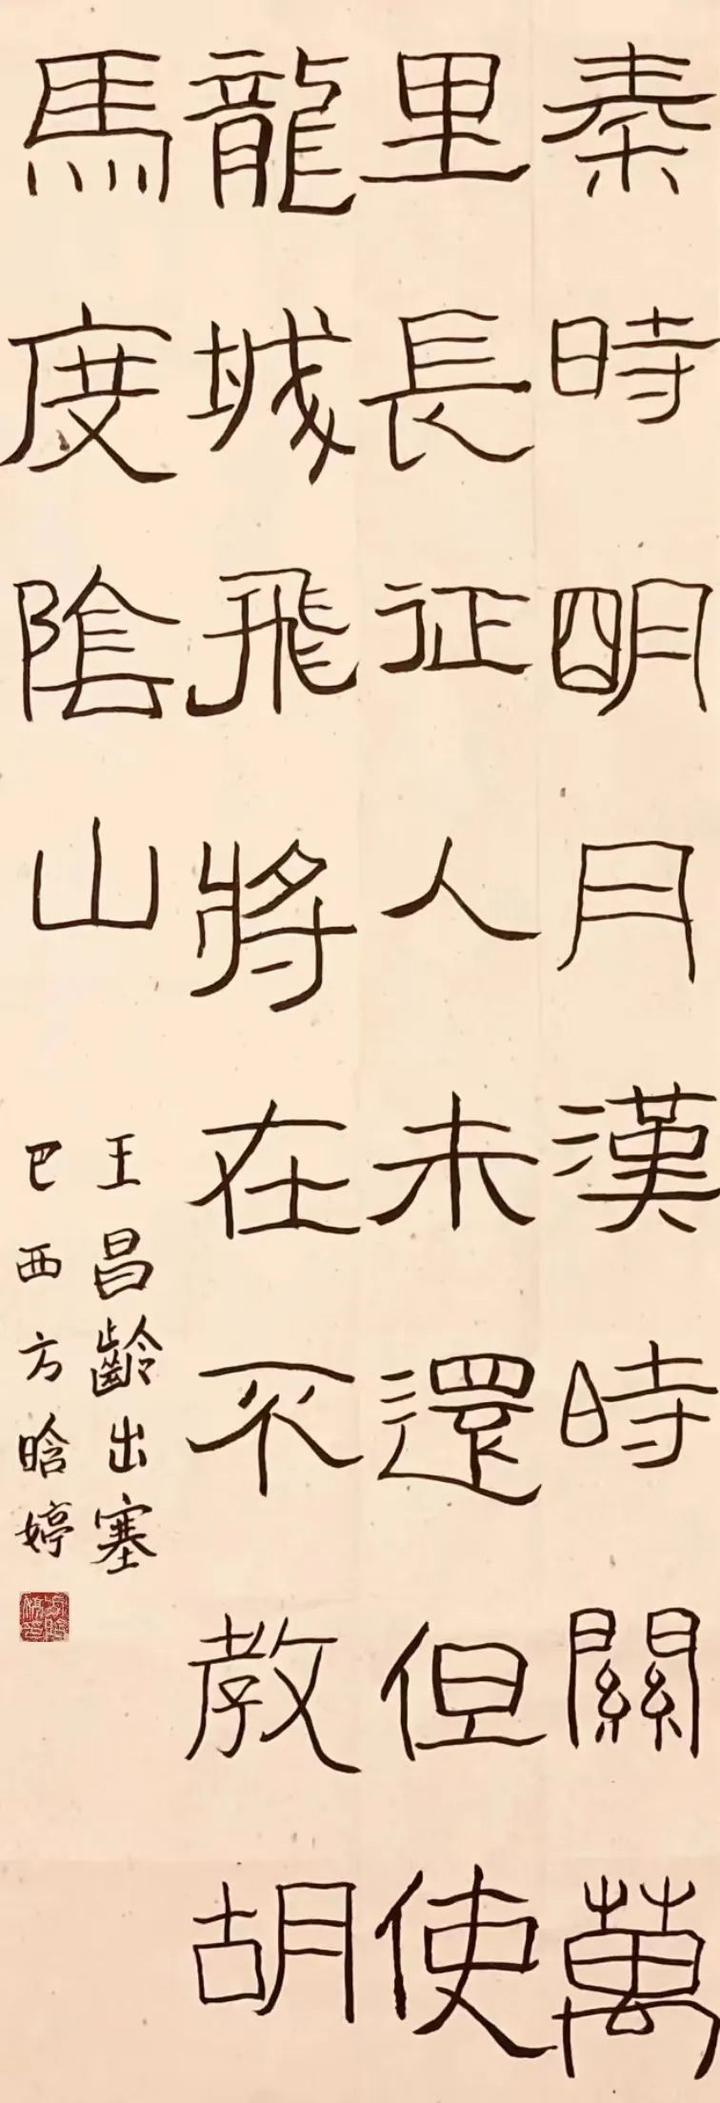 秦時明月漢時關萬
里長征人未還但使
龍城飛將在不教胡
馬度陰山
王昌齡出塞
巴西方晗婷